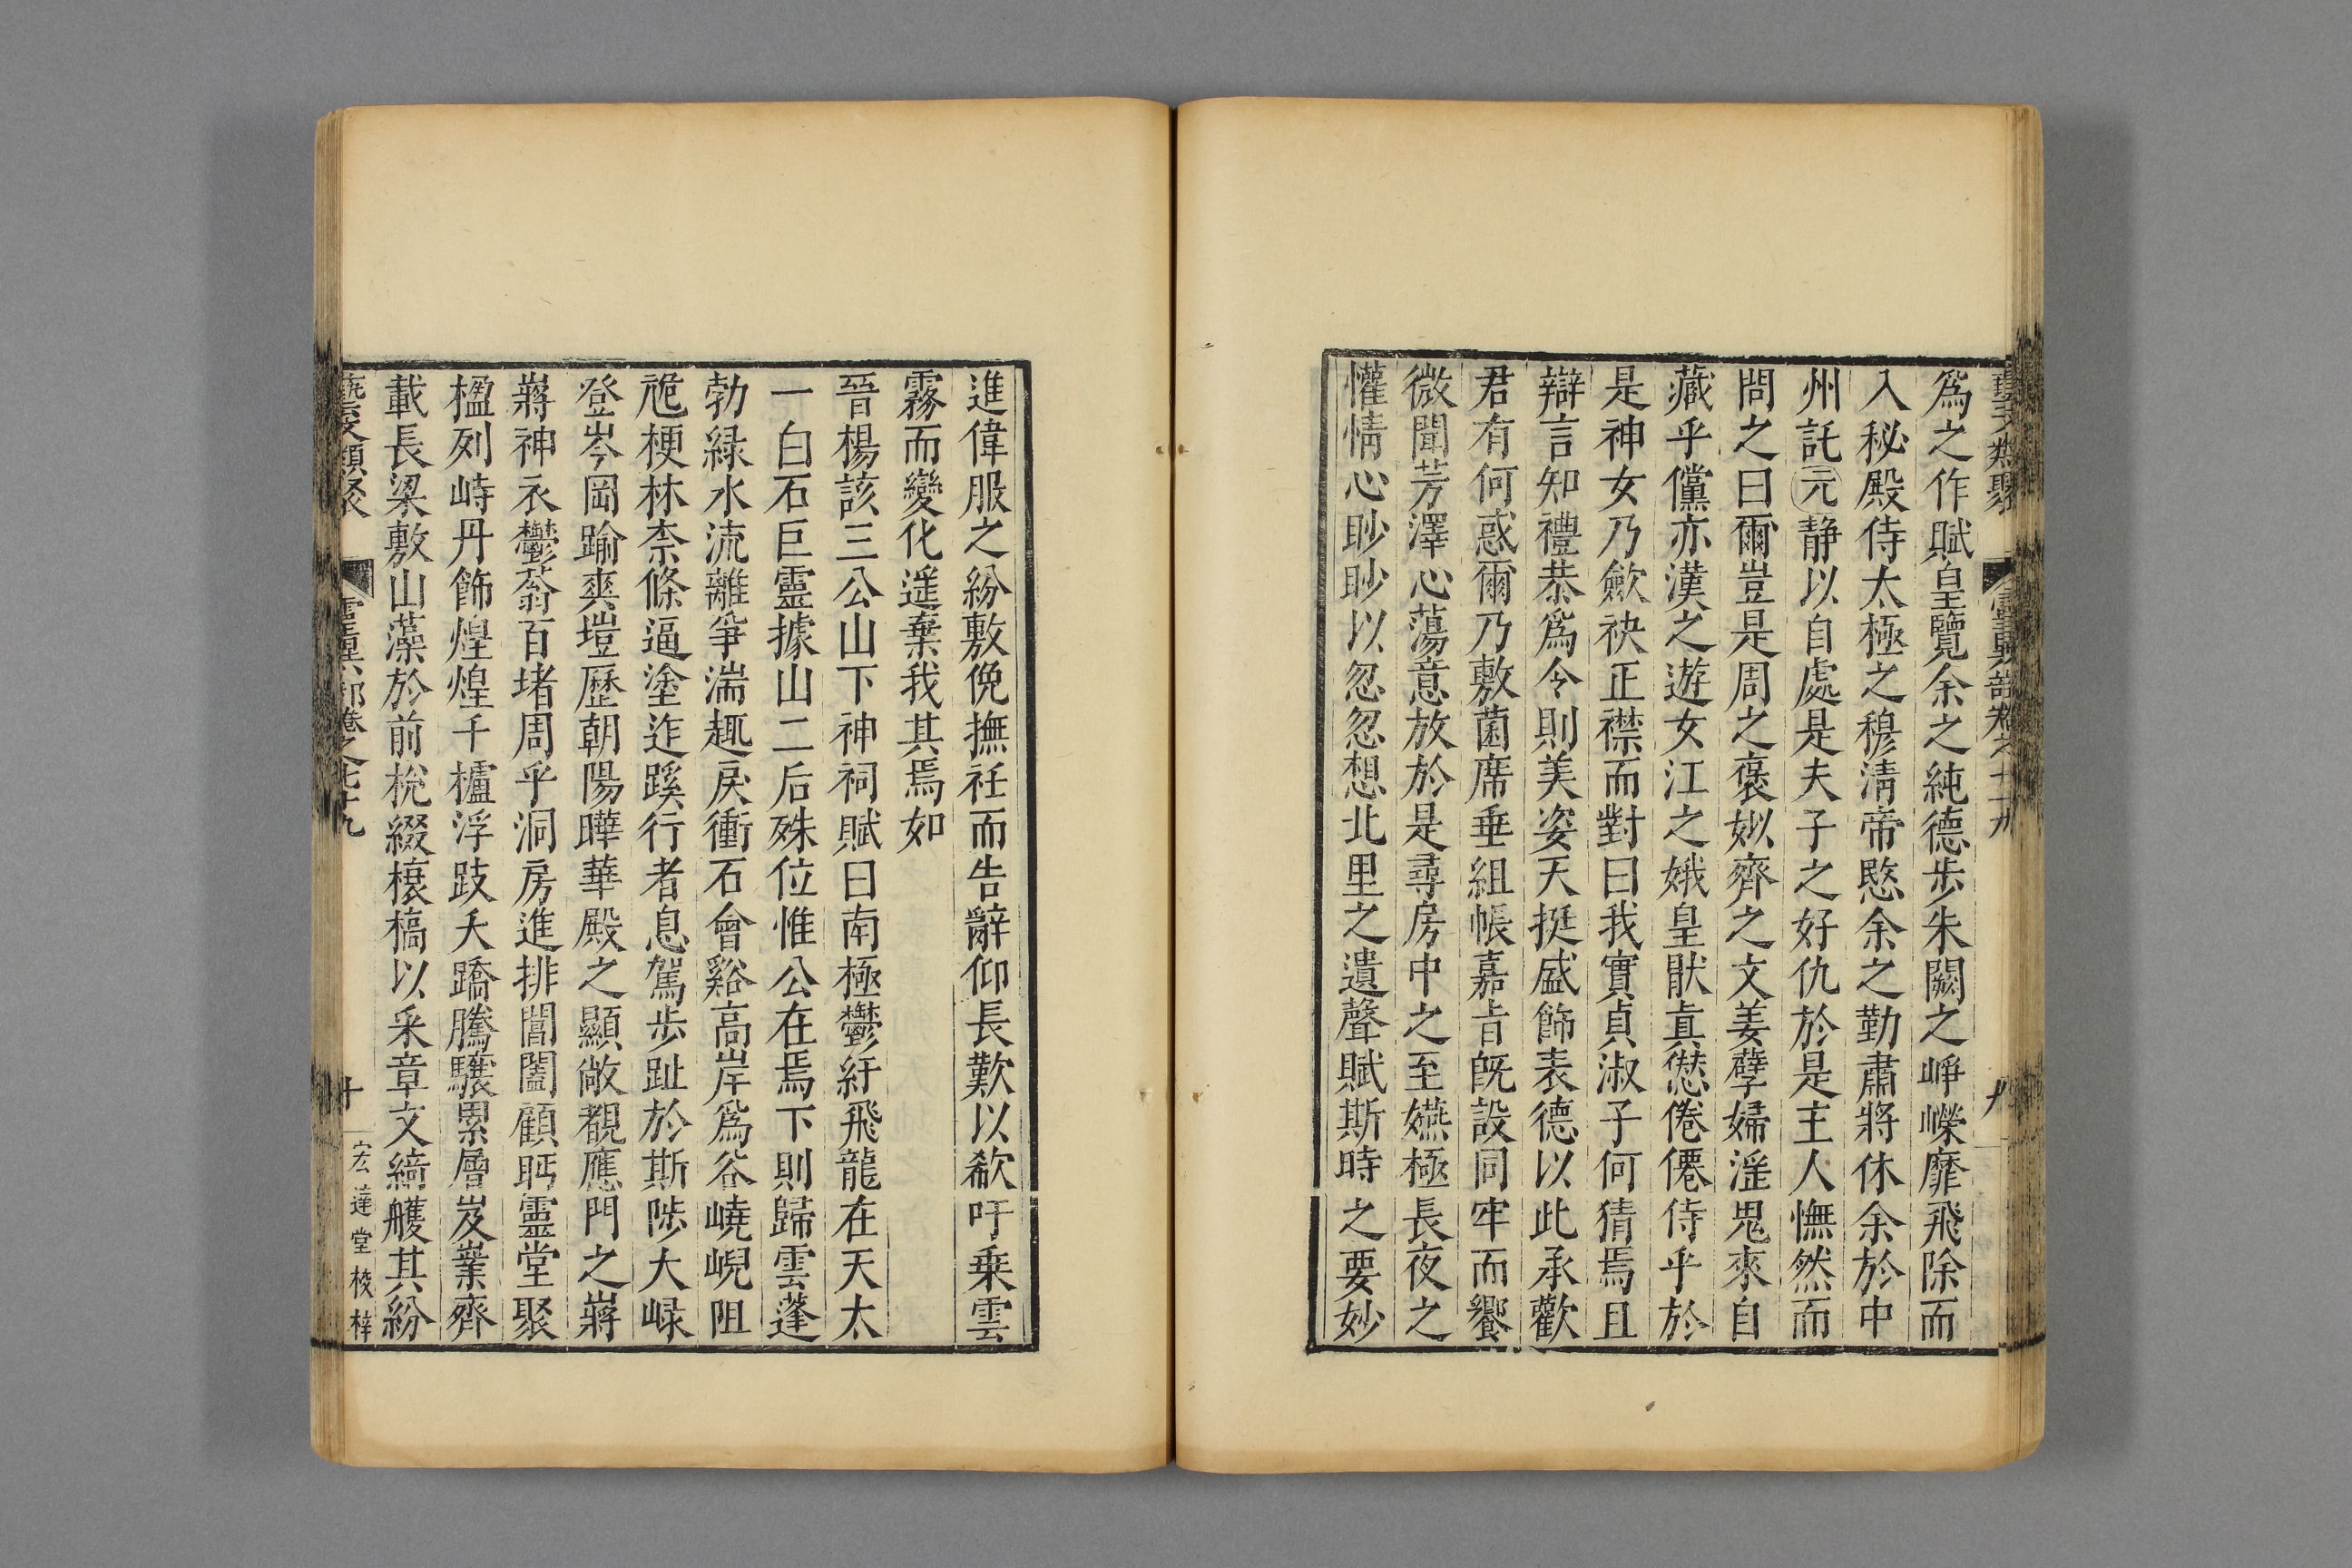 藝文類聚 靈異部卷之七十九 九
爲之作賦皇覽余之純德步朱闕之崢嶸靡飛除而
入秘殿侍太極之穆清帝愍余之勤肅將休余於中
州託元静以自處是夫子之好仇於是主人憮然而
問之曰爾豈是周之褒姒齊之文姜孽婦淫鬼來自
藏乎儻亦漢之遊女江之娥皇猒真僁倦僊侍乎於
是神女乃歛袂正襟而對曰我實貞淑子何猜焉且
辯言知禮恭爲令則美姿天挺盛飾表德以此承歡
君有何惑爾乃敷茵席垂組帳嘉旨既設同牢而饗
微聞芳澤心蕩意放於是尋房中之至嬿極長夜之
懽情心眇眇以忽忽想北里之遺聲賦斯時之要妙
進偉服之紛敷俛撫衽而告辭仰長歎以欷吁乗雲
霧而變化遥棄我其焉如
晉楊該三公山下神祠賦曰南極鬱紆飛龍在天太
一白石巨靈據山二后殊位惟公在焉下則歸雲蓬
勃綠水流離爭湍趣戾衝石會谿高岸爲谷嶢峴阻
脆梗林柰條逼塗迮蹊行者息駕步趾於斯陟大崊
登岑岡踰爽塏歷朝陽曄華殿之顯敞覩應門之蔣
蔣神衣鬱蓊百堵周乎洞房進排閶闔顧眄靈堂聚
楹列峙丹飾煌煌千櫨浮跂夭蹻騰驤累層岌嶪齊
載長梁敷山藻於前梲綴榱槁以采章文綺艧其紛
藝文類聚 靈異部卷之七十九 十 宏達堂校梓